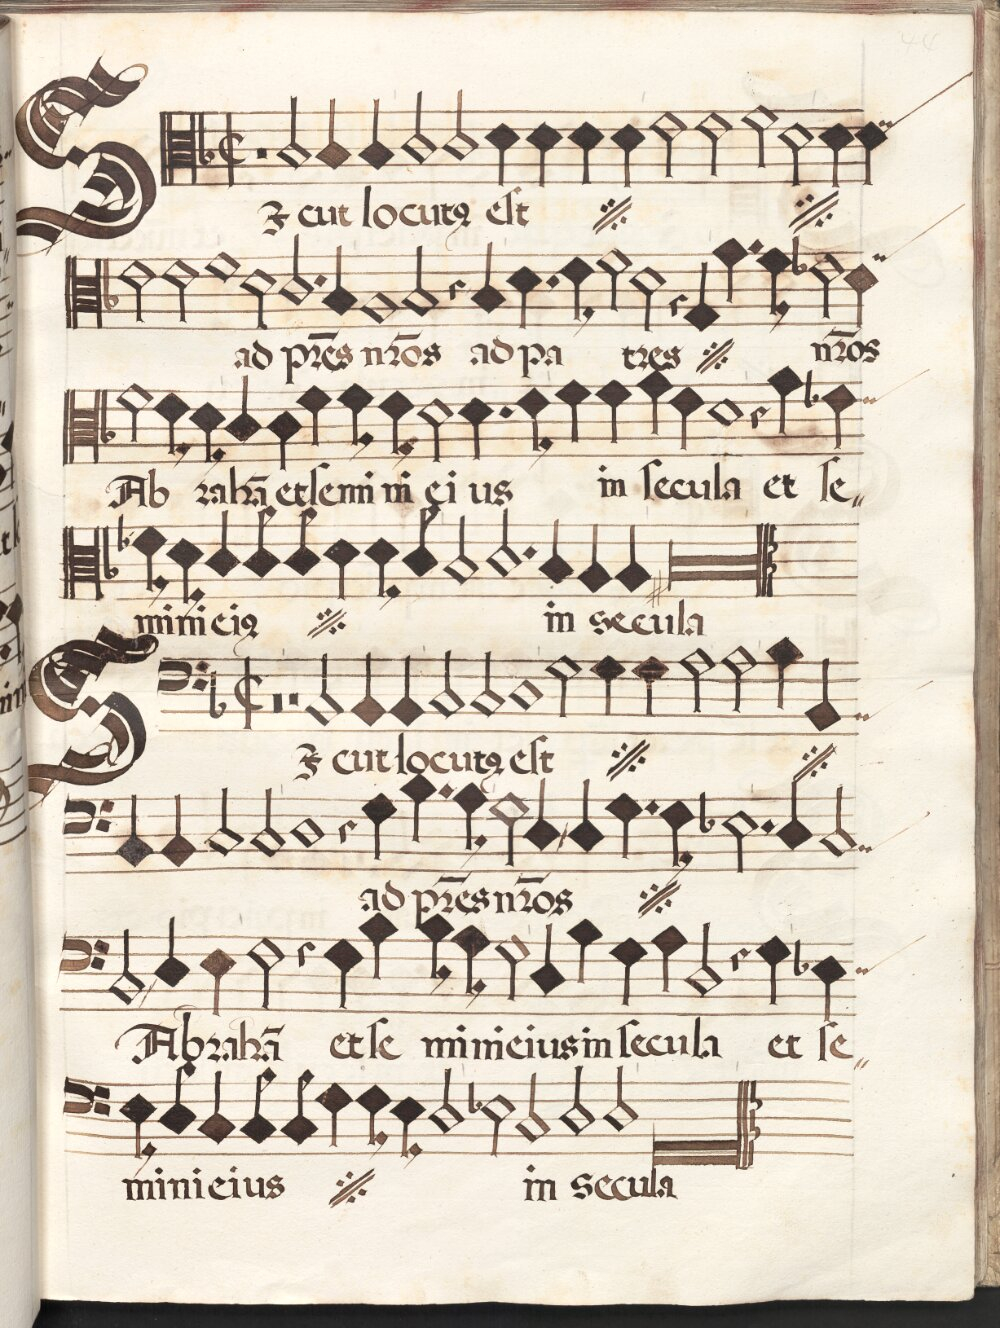 44
Sicut locutꝰ est ※ ※
ad pr̄es nr̄os ad pa tres ※ nr̄os
Ab rahā et semini ei us in secula et se„
mini eiꝰ ※ in secula
Sicut locutꝰ est ※ ※
ad pr̄es nr̄os ※
Abrahā et se mini eius in secula et se„
mini eius ※ in secula